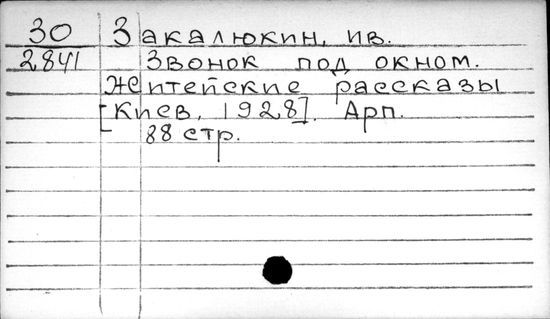 30 Закалюкин, ив.
2841 Звонок под окном.
Житейские рассказы
[Киев, 1928]. Арп.
88 стр.